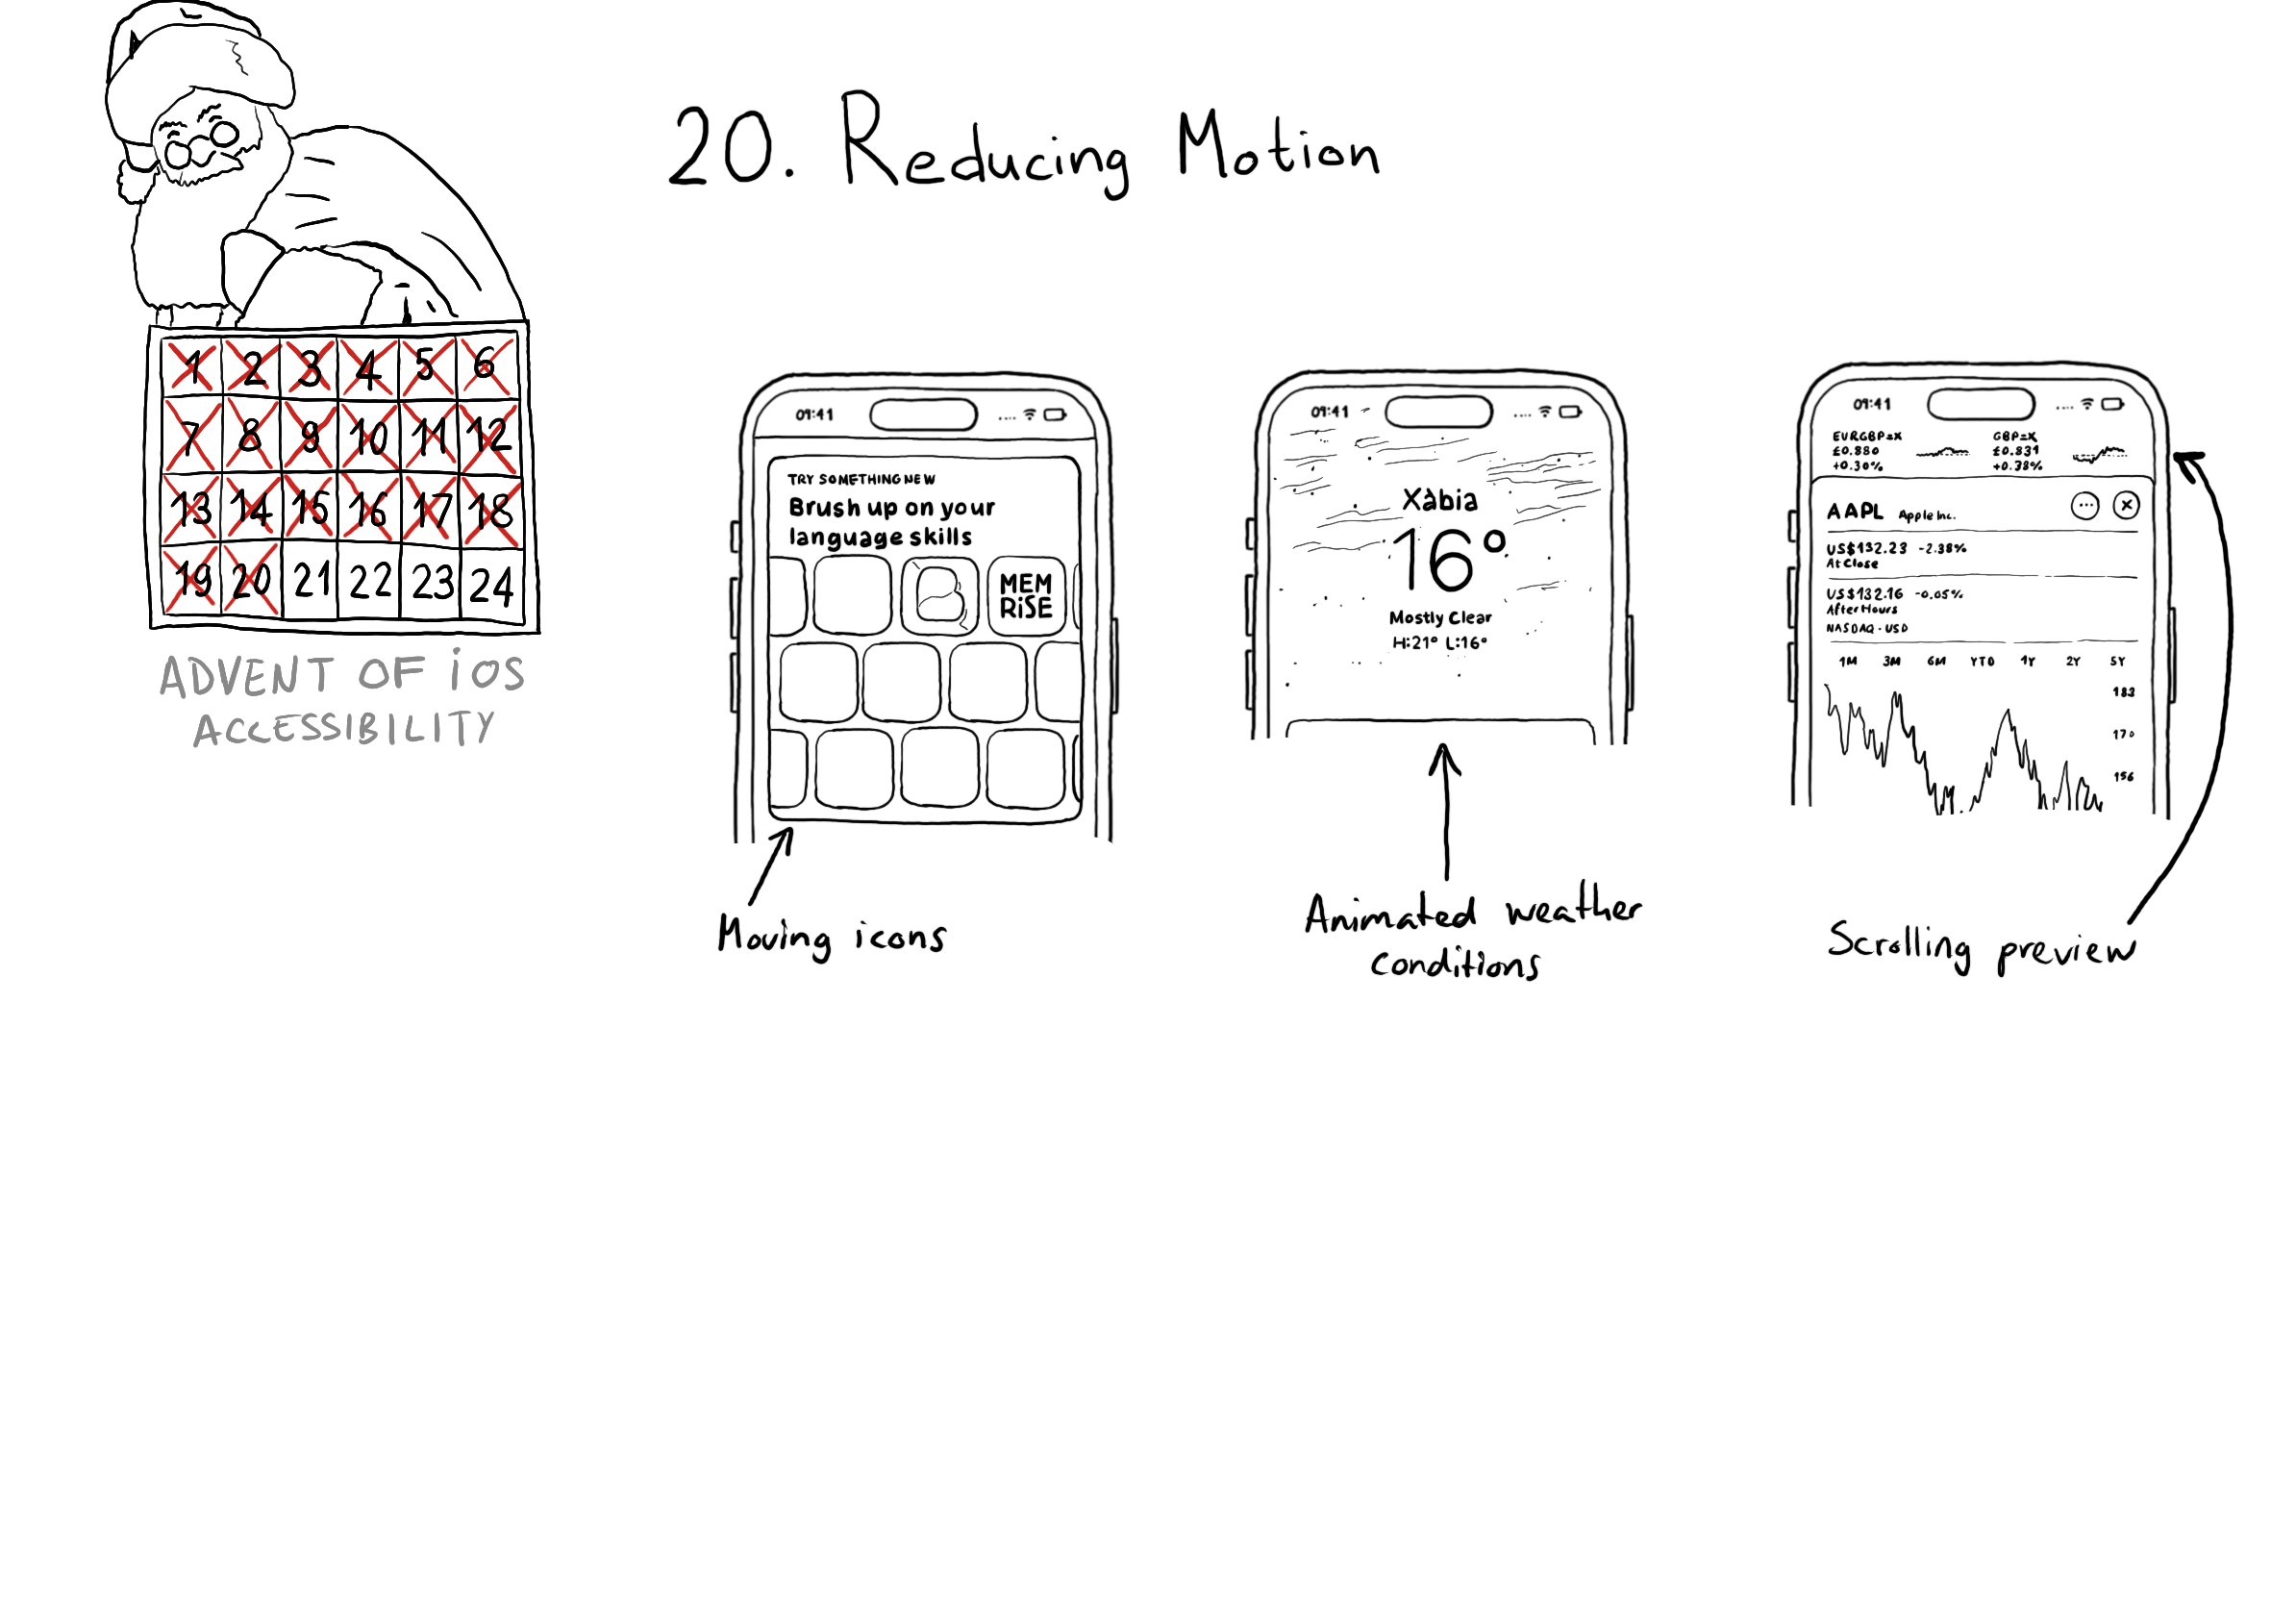 20. Reducing Motion
1 2 3 4 5 6
7 8 9 10 11 12
13 14 15 16 17 18
19 20 21 22 23 24
ADVENT OF iOS
ACCESSIBILITY
09:41
TRY SOMETHING NEW
Brush up on your
language skills
B
MEM
RiSE
Moving icons
09:41
Xàbia
16°
Mostly Clear
H:21° L:16°
Animated weather
conditions
09:41
EURGBP=X
£0.880
+0.30%
GBP=X
£0.831
+0.38%
AAPL Apple Inc.
US$132.23 -2.38%
At Close
US$132.16 -0.05%
After Hours
NASDAQ · USD
1M 3M 6M YTD 1Y 2Y 5Y
183
170
156
Scrolling preview